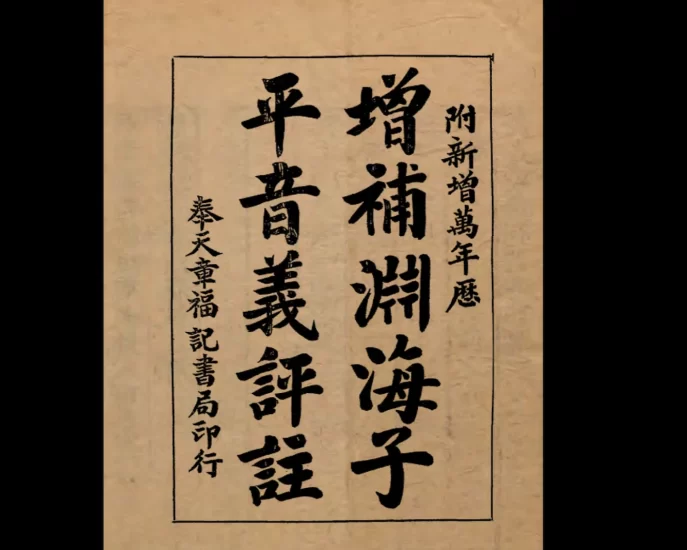 附新增萬年歷
增補淵海子
平音義評註
奉天章福記書局印行